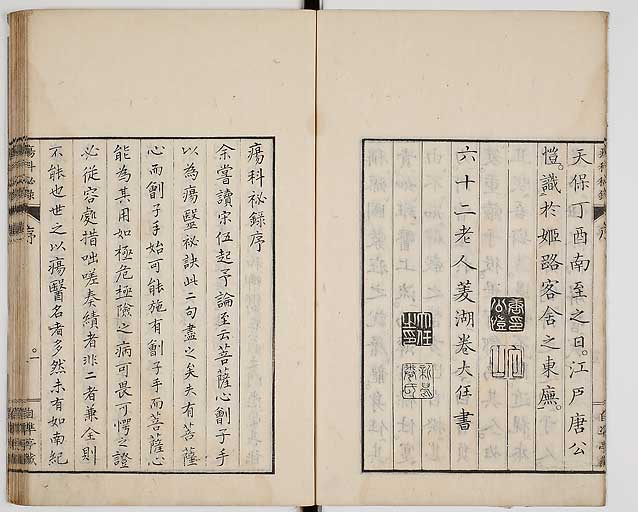 天保丁酉南至之日江戸唐公
愷識於姬路客舎之東廡
六十二老人菱湖卷大任書
瘍科祕錄序
余嘗讀宋伍起予論至云菩薩心劊子手
以為瘍毉祕訣此二句盡之矣夫有菩薩
心而劊子手始可能施有劊子手而菩薩心
能為其用如極危極險之病可畏可愕之證
必從容處措咄嗟奏績者非二者兼全則
不能也世之以瘍醫名者多然未有如南紀
瘍科祕錄
序
一
自準亭藏